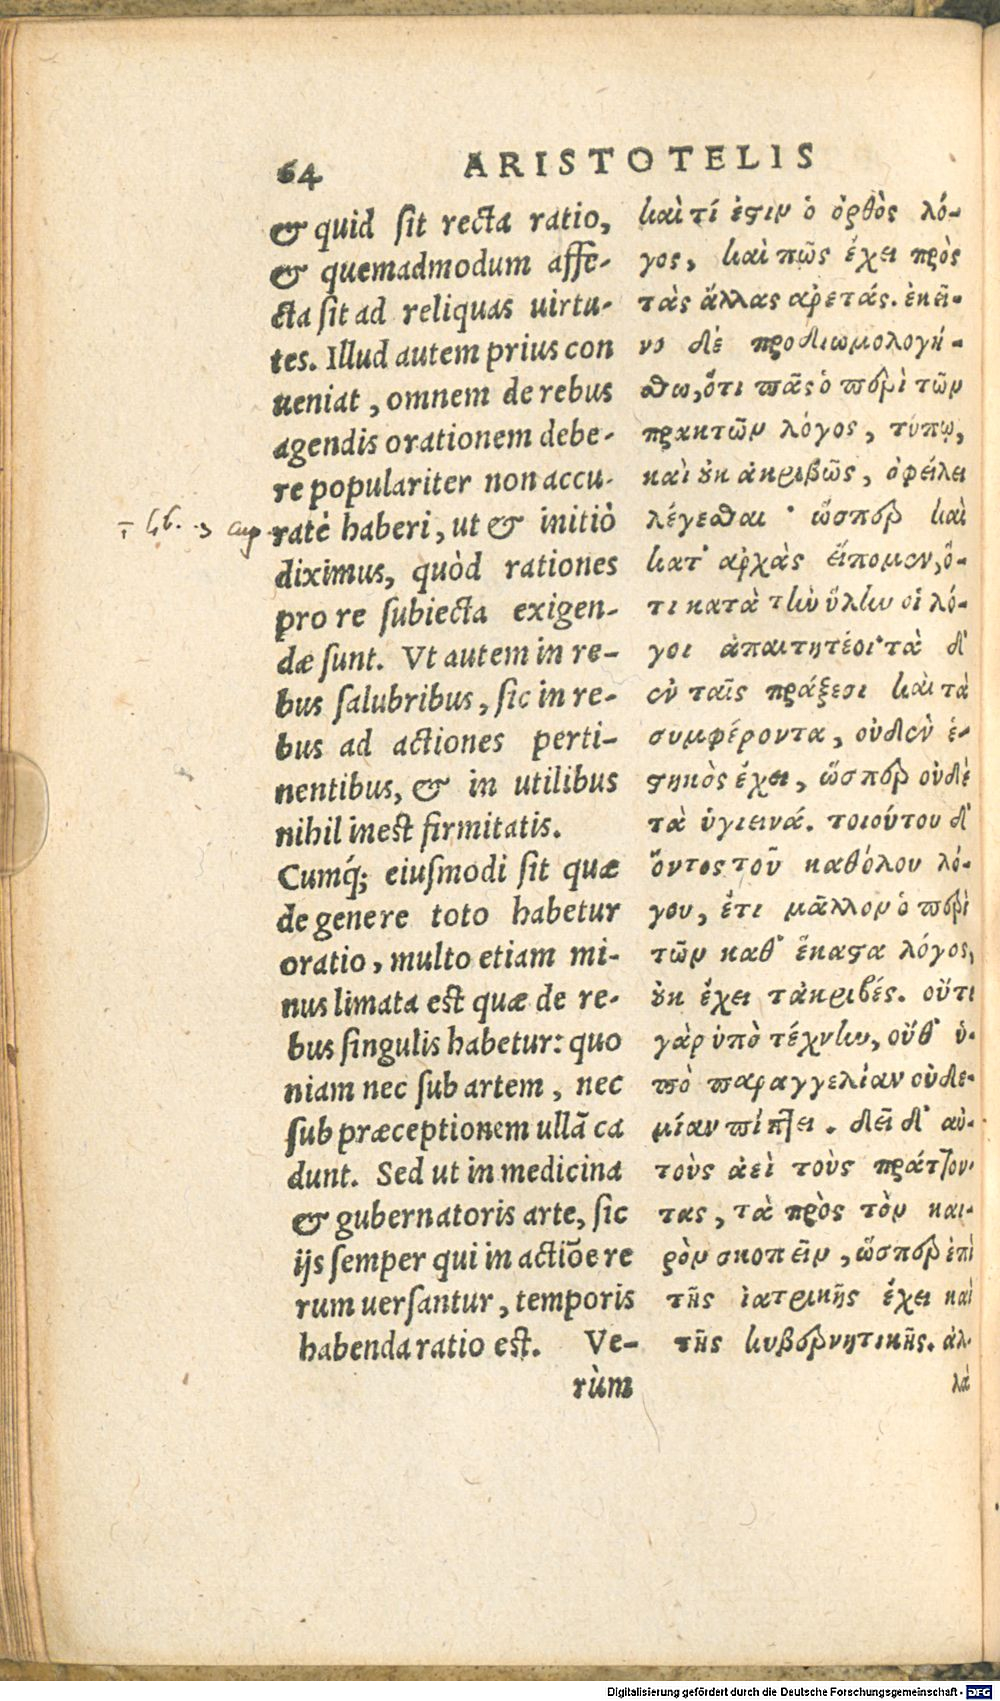 64 ARISTOTELIS
& quid sit recta ratio,
& quemadmodum affe-
cta sit ad reliquas uirtu-
tes. Illud autem prius con
ueniat, omnem de rebus
agendis orationem debe-
re populariter non accu-
ratè haberi, ut & initiò
diximus, quòd rationes
pro re subiecta exigen-
dæ sunt. Vt autem in re-
bus salubribus, sic in re-
bus ad actiones perti-
nentibus, & in utilibus
nihil inest firmitatis.
Cumq́; eiusmodi sit quæ
de genere toto habetur
oratio, multo etiam mi-
nus limata est quæ de re-
bus singulis habetur: quo
niam nec sub artem, nec
sub præceptionem ullã ca
dunt. Sed ut in medicina
& gubernatoris arte, sic
ijs semper qui in actiõe re
rum uersantur, temporis
habenda ratio est. Ve-
rùm
καὶ τί ἐϛιν ὁ ὀρθὸς λό-
γος, καὶ πῶς ἔχει πρὸς
τὰς ἄλλας ἀρετάς. ἐκεῖ-
νο δὲ προδιωμολογή-
σθω, ὅτι πᾶς ὁ περὶ τῶν
πρακτῶν λόγος, τύπῳ,
καὶ ȣκ ἀκριβῶς, ὀφείλει
λέγεσθαι· ὥσπερ καὶ
κατ' ἀρχὰς εἴπομεν, ὅ-
τι κατὰ τὴν ὕλην οἱ λό-
γοι ἀπαιτητέοι· τὰ δ'
ἐν ταῖς πράξεσι καὶ τὰ
συμφέροντα, οὐδὲν ἑ-
ϛηκὸς ἔχει, ὥσπερ οὐδὲ
τὰ ὑγιεινά. τοιούτου δ'
ὄντος τοῦ καθόλου λό-
γου, ἔτι μᾶλλον ὁ περὶ
τῶν καθ' ἕκαϛα λόγος,
ȣκ ἔχει τἀκριβές. οὔτε
γὰρ ὑπὸ τέχνην, οὔθ' ὑ-
πὸ παραγγελίαν οὐδε-
μίαν πίπτει. δεῖ δ' αὐ-
τοὺς ἀεὶ τοὺς πράττον-
τας, τὰ πρὸς τὸν και-
ρὸν σκοπεῖν, ὥσπερ ἐπὶ
τῆς ἰατρικῆς ἔχει καὶ
τῆς κυβερνητικῆς. ἀλ-
λὰ
lib. 3 cap
Digitalisierung gefördert durch die Deutsche Forschungsgemeinschaft - DFG